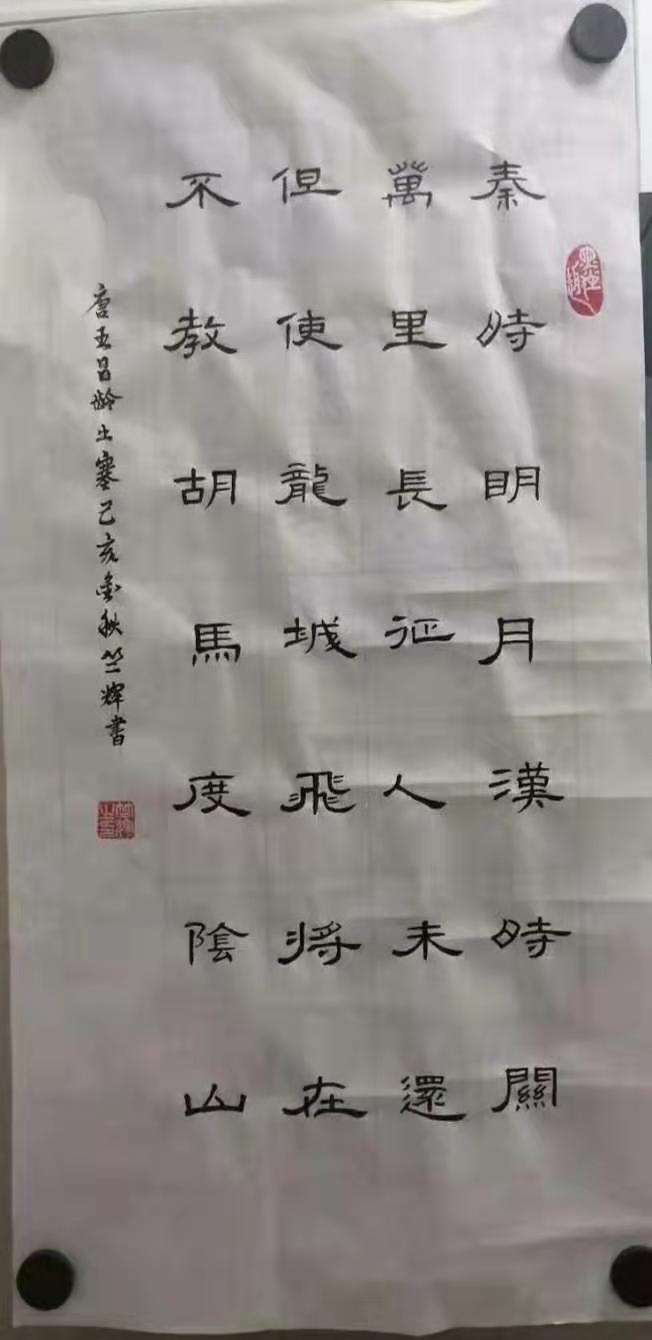 秦時明月漢時關
萬里長征人未還
但使龍城飛將在
不教胡馬度陰山
唐王昌齡出塞己亥金秋竺輝書